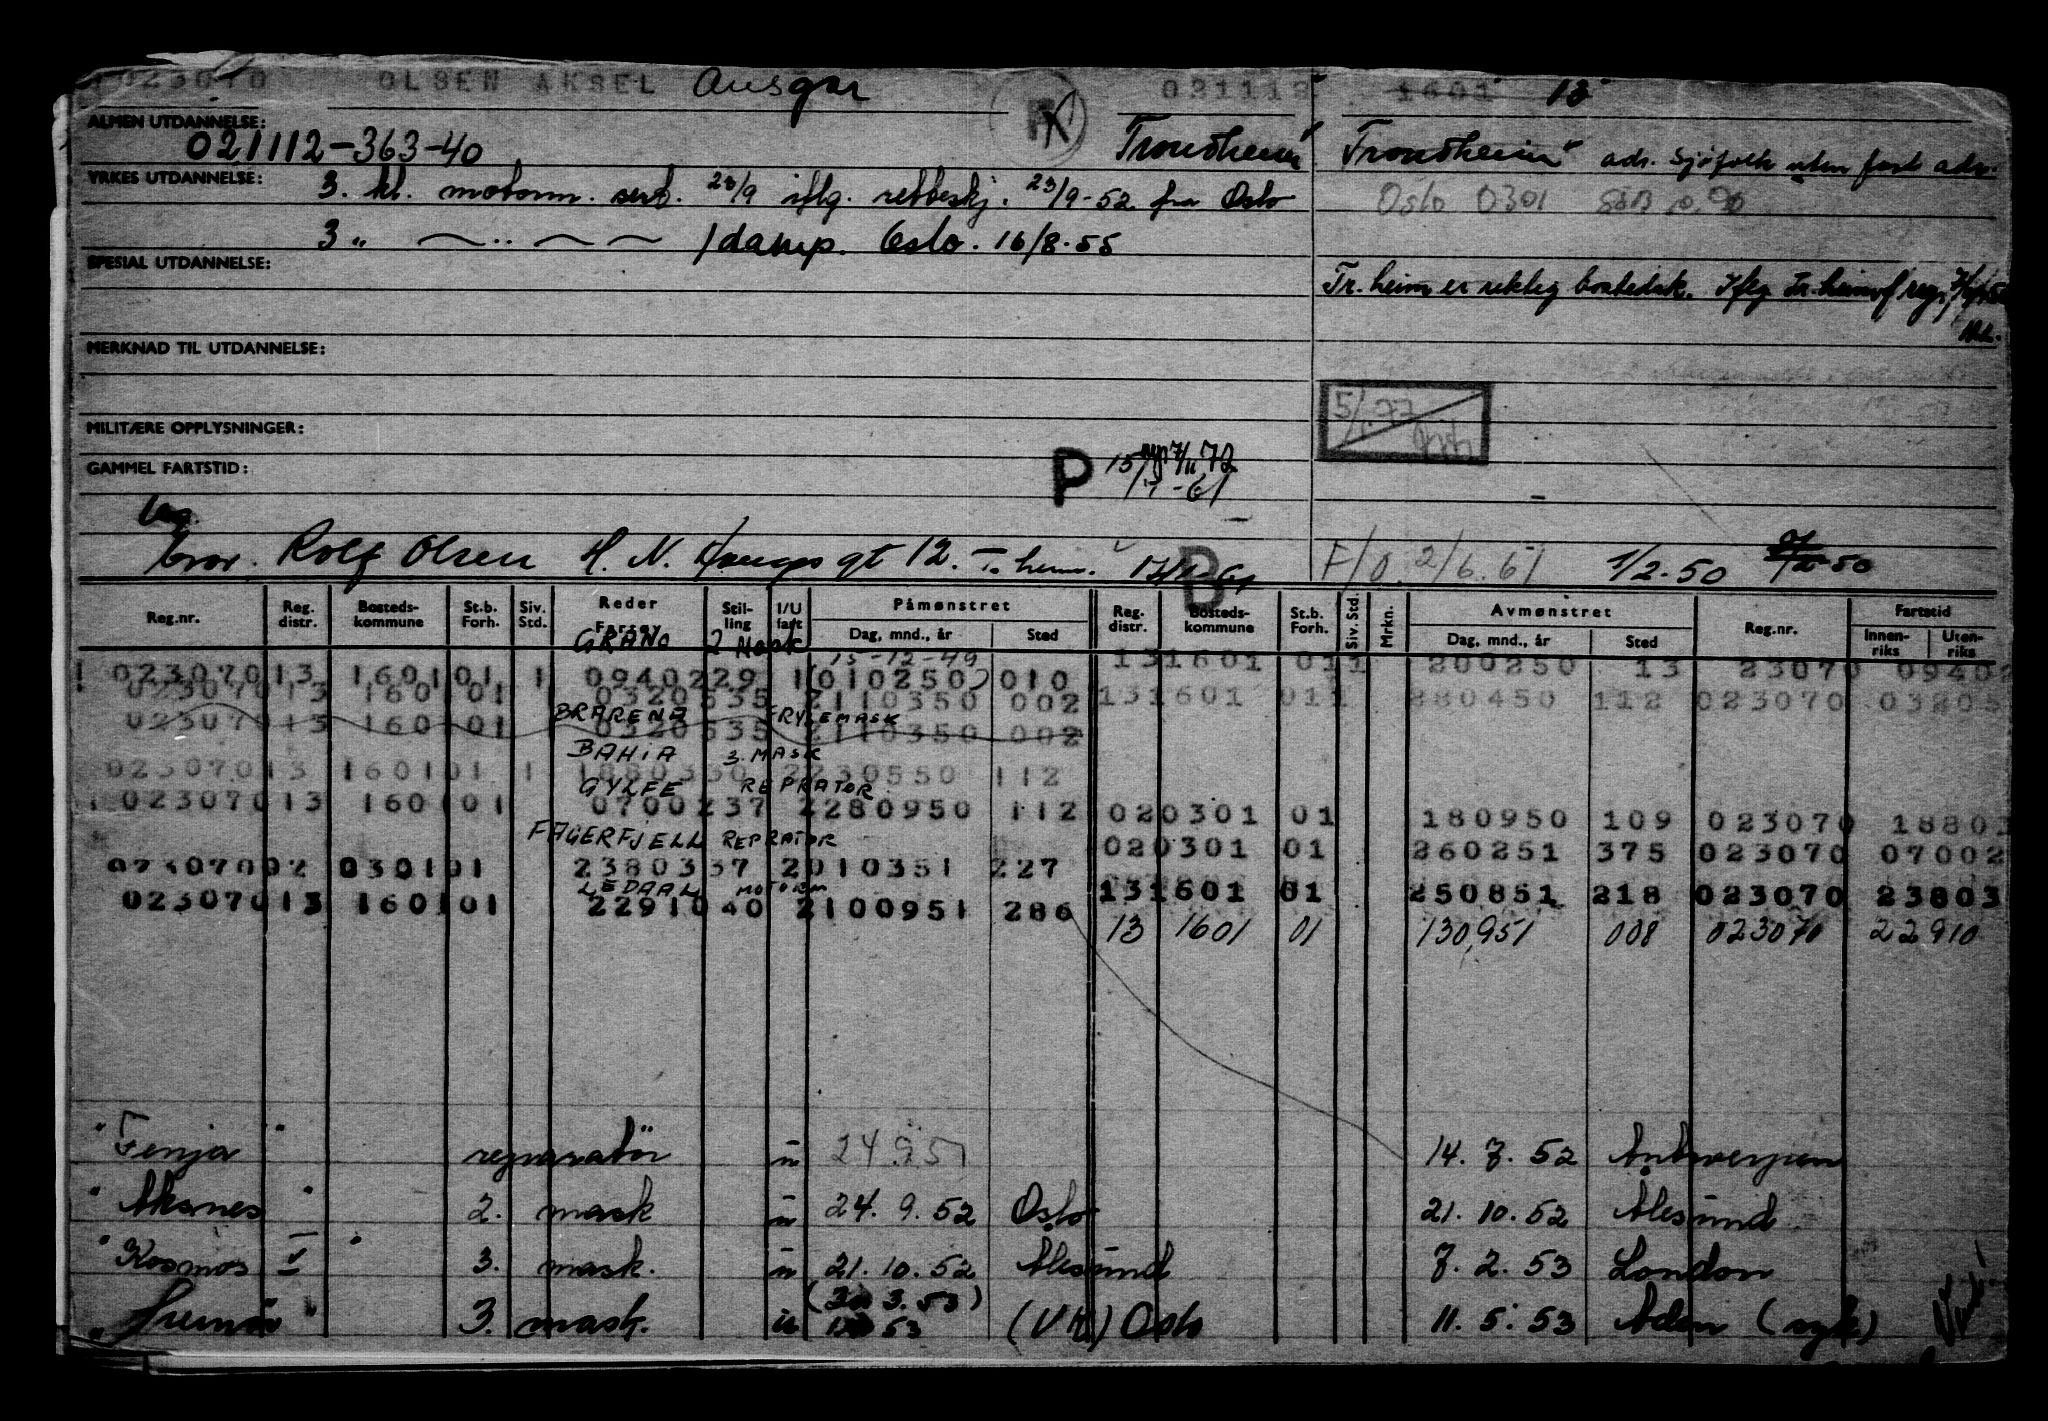 023070 OLSEN AKSEL Ansgar 021112 1601 13
ALMEN UTDANNELSE:
021112-363-40 Trondheim Trondheim adr. Sjøfolk uten fast adr.
YRKES UTDANNELSE: 3. kl. motorm. sert. 23/9 iflg. rettbeskj. 23/9-52 fra Oslo
Oslo 0301
3 " /damp. Oslo. 16/8-55
SPESIAL UTDANNELSE:
Tr.heim er riktig bostedsk. Iflg Tr.heim
MERKNAD TIL UTDANNELSE:
5/77
MILITÆRE OPPLYSNINGER:
GAMMEL FARTSTID:
P 15/ -61
Bror. Rolf Olsen H. N. Haugs gt 12. T.heim. B F/O 2/6.61 1/2-50
Reg.nr. Reg. distr. Bosteds-kommune St.b. Forh. Siv. Std. Reder Fartøy Stil-ling I/U fart Påmønstret Dag, mnd., år Sted Reg. distr. Bosteds-kommune St.b. Forh. Siv. Std. Mrkn. Avmønstret Dag, mnd., år Sted Reg.nr. Fartstid Innen-riks Uten-riks
GRANO 2 Mask
15-12-49
023070 13 1601 01 1 09402 29 1 010250 010 13 1601 01 1 200250 13 23070 0940
023070 13 160 01 1 0320535 2110350 002 13 1601 01 1 280450 112 023070 03205
BRARENA FRYSEMASK
023070 13 160 01 0320535 2110350 002
BAHIA 3. MASK
023070 13 1601 01 1 1880330 2230550 112
GYLFE REPRATOR
023070 13 160 01 0700237 2280950 112 02 0301 01 180950 109 023070 1880
FAGERFJELL REPRATOR
02 0301 01 260251 375 023070 07002
023070 02 0301 01 2380337 2010351 227
LEDAAL MOTORM
13 1601 01 250851 218 023070 23803
023070 13 1601 01 22910 40 2100951 286
13 1601 01 130951 008 023070 22910
"Fenja" reparatør u 24.9.51 14.7.52 Antwerpen
"Aksnes" 2. mask u 24.9.52 Oslo 21.10.52 Ålesund
"Kosmos V" 3. mask. u 21.10.52 Ålesund 7.2.53 London
3. mask. u 53 Oslo 11.5.53 Aden (syk)